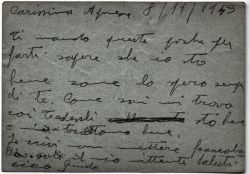 Carissima Agnese 8/11/1943
Ti mando queste poche per
farti sapere che io sto
bene come lo spero
di te. Come sai mi trovo
coi tedeschi sto bene
e mi trattano bene.
scrivi mettere francobollo
il mio mittente saluti
ciao Guido